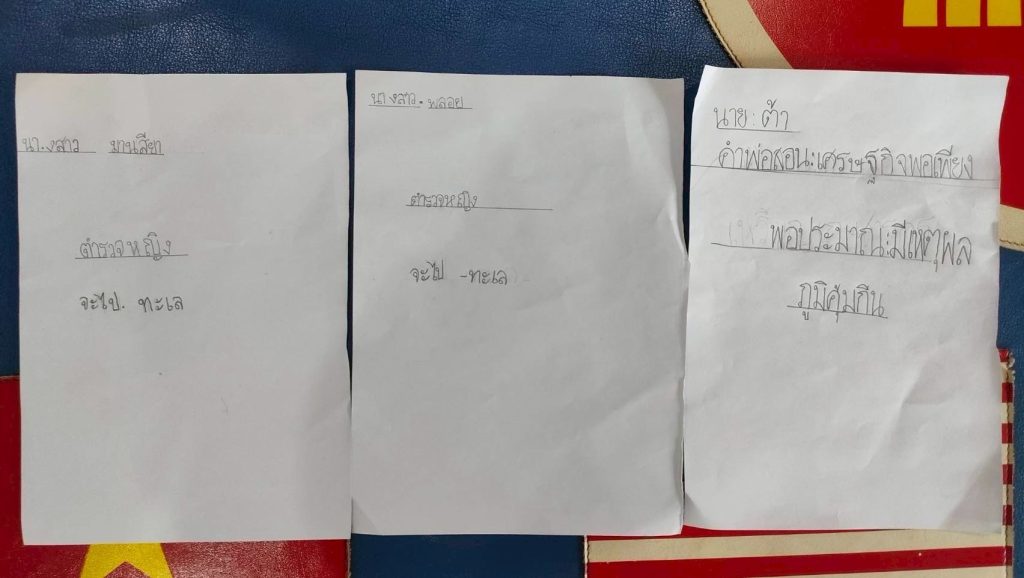 นา.งสาว มานสียา
ตำรวจหญิง
จะไป. ทะเล
นางสาว. พลอย
ตำรวจหญิง
จะไป -ทะเล
นาย: ต้า
คำพ่อสอน:เศรษฐกิจพอเพียง
พอประมาณ:มีเหตุผล
ภูมิคุ้มกัน